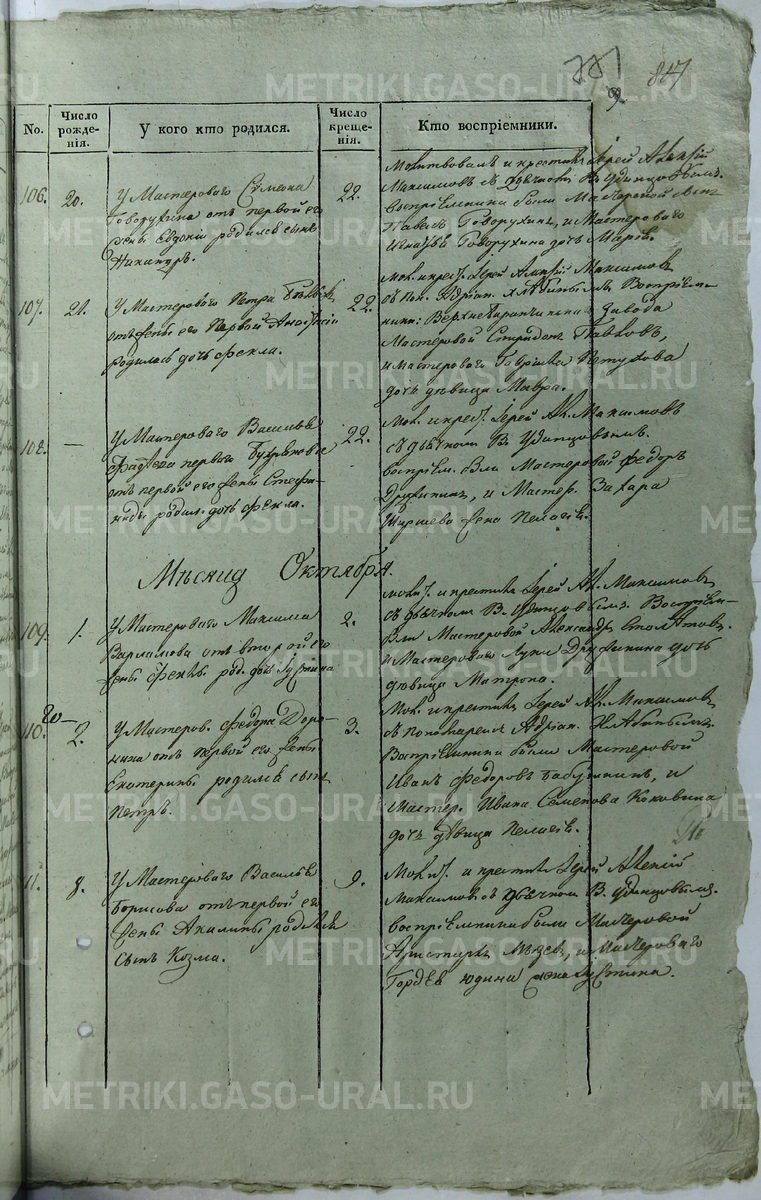 847
No.
Число рожденія.
У кого кто родился.
Число крещенія.
Кто воспріемники.
106.
20.
У Мастероваго Симеона
Говорухина отъ первой его
жены Евдокіи родился сынъ
Никандръ.
22.
Молитвовалъ и крестилъ Іерей Алексій
Максимовъ съ дьячкомъ В. Удинцовымъ.
воспріемники были Мастерской сынъ
Павелъ Говорухинъ, и Мастероваго
Игнатья Говорухина дочь Марія.
107.
21.
У Мастероваго Петра
отъ жены его первой Анастасіи
родилась дочь Фекла.
22.
Мол. и крест. Іерей Алексій Максимовъ
съ пон. Адріан. Хлабинымъ Воспріем-
ники: Верхнетагильскаго Завода
Мастеровой Спиридонъ Павловъ,
и Мастероваго Гавріила Петухова
дочь дѣвица Мавра.
108.
—
У Мастероваго Василья
отъ первой его жены Стефа-
ниды родил. дочь Фекла.
22.
Мол. и крест. Іерей Ал. Максимовъ
съ дьячкомъ В. Удинцовымъ.
воспріем. были Мастеровой Федоръ
Дружининъ, и Мастер. Захара
жена Пелагея.
Мѣсяцъ Октябрь.
109.
1.
У Мастероваго Максима
Варламова отъ второй его
жены Феклы род. дочь Іустина
2.
Молит. и крестилъ Іерей Ал. Максимовъ
съ дьячкомъ В. Удинцовымъ. Воспріем-
были Мастеровой Александръ
и Мастероваго Луки Дружинина дочь
дѣвица Матрона.
110.
2.
У Мастеров. Федора Доро-
нина отъ первой его жены
Екатерины родился сынъ
Петръ.
3.
Мол. и крестилъ Іерей Ал. Максимовъ
съ пономаремъ Адріан. Хлабинымъ.
Воспріемники были Мастеровой
Иванъ Федоровъ Бабушкинъ, и
Мастер. Ивана Семенова Коковина
дочь дѣвица Пелагея.
11.
8.
У Мастероваго Василья
Борисова отъ первой его
жены Акилины родился
сынъ Козма.
9.
Молит. и крестилъ Іерей Алексій
Максимовъ съ дьячкомъ В. Удинцовымъ.
воспріемники были Мастеровой
Аристархъ и Мастероваго
Гордѣя Юдина жена Іустина.
METRIKI.GASO-URAL.RU